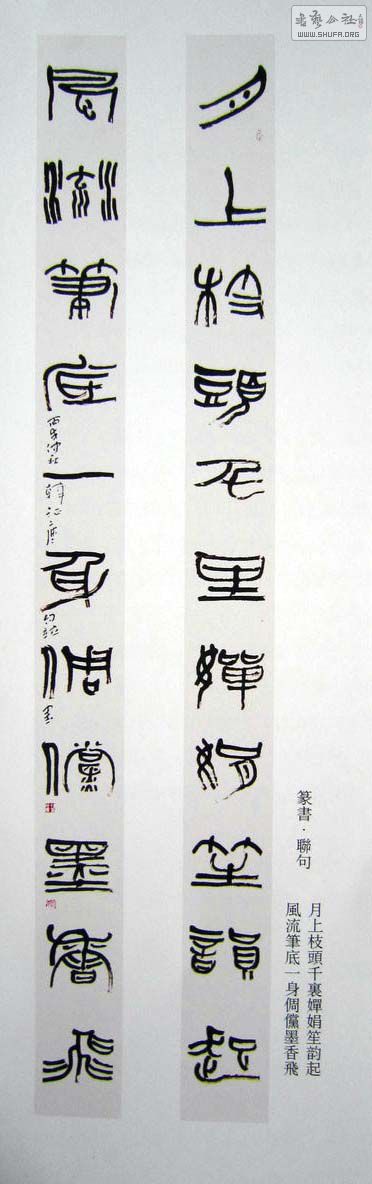 書藝公社
WWW.SHUFA.ORG
月上枝頭千里嬋娟笙韻起
風流筆底一身倜儻墨香飛
篆書·聯句
月上枝頭千裏嬋娟笙韵起
風流筆底一身倜儻墨香飛